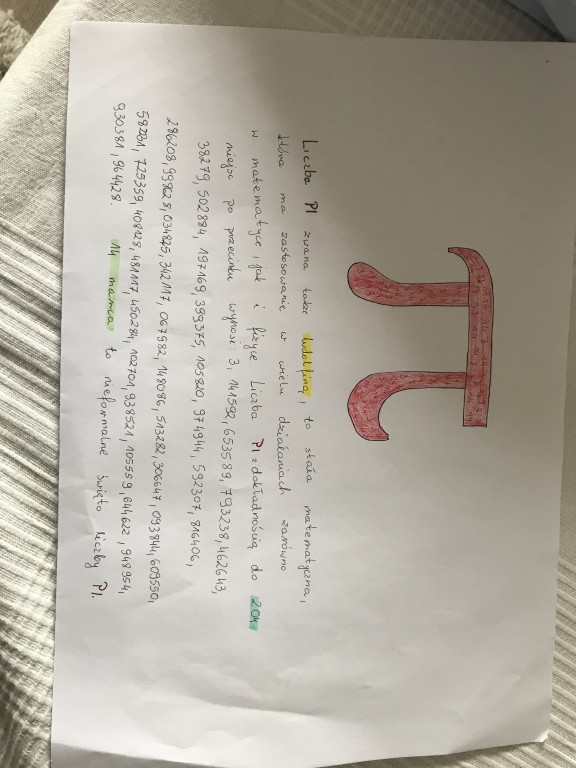 Liczba PI zwana także ludolfiną, to stała matematyczna,
która ma zastosowanie w wielu działaniach zarówno
w matematyce, jak i fizyce Liczba PI z dokładnością do 204
miejsc po przecinku wynosi 3, 141592, 653589, 793238, 462643,
38279, 502884, 197169, 399375, 105820, 974944, 592307, 816406,
286208, 99828, 034825, 342117, 067982, 148086, 513282, 306647, 093844, 609550,
58231, 725359, 408128, 481117, 450284, 102701, 938521, 105559, 644622, 948954,
930381, 964428. 14 marca to nieformalne święto liczby PI.